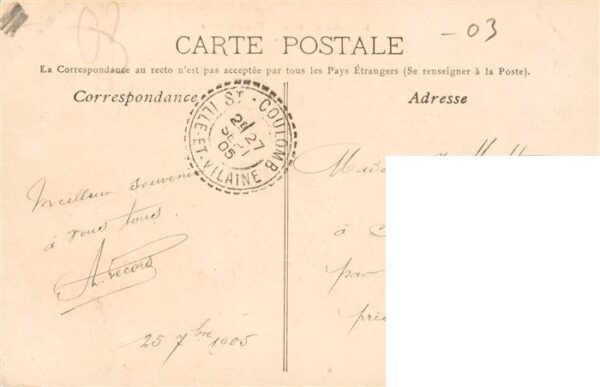 -03
03
CARTE POSTALE
La Correspondance au recto n'est pas acceptée par tous les Pays Étrangers (Se renseigner à la Poste).
Correspondance
Adresse
ST-COULOMB
27
05
ILLE-ET-VILAINE
Meilleur souvenir
à vous tous.
25 7bre 1905
à
par